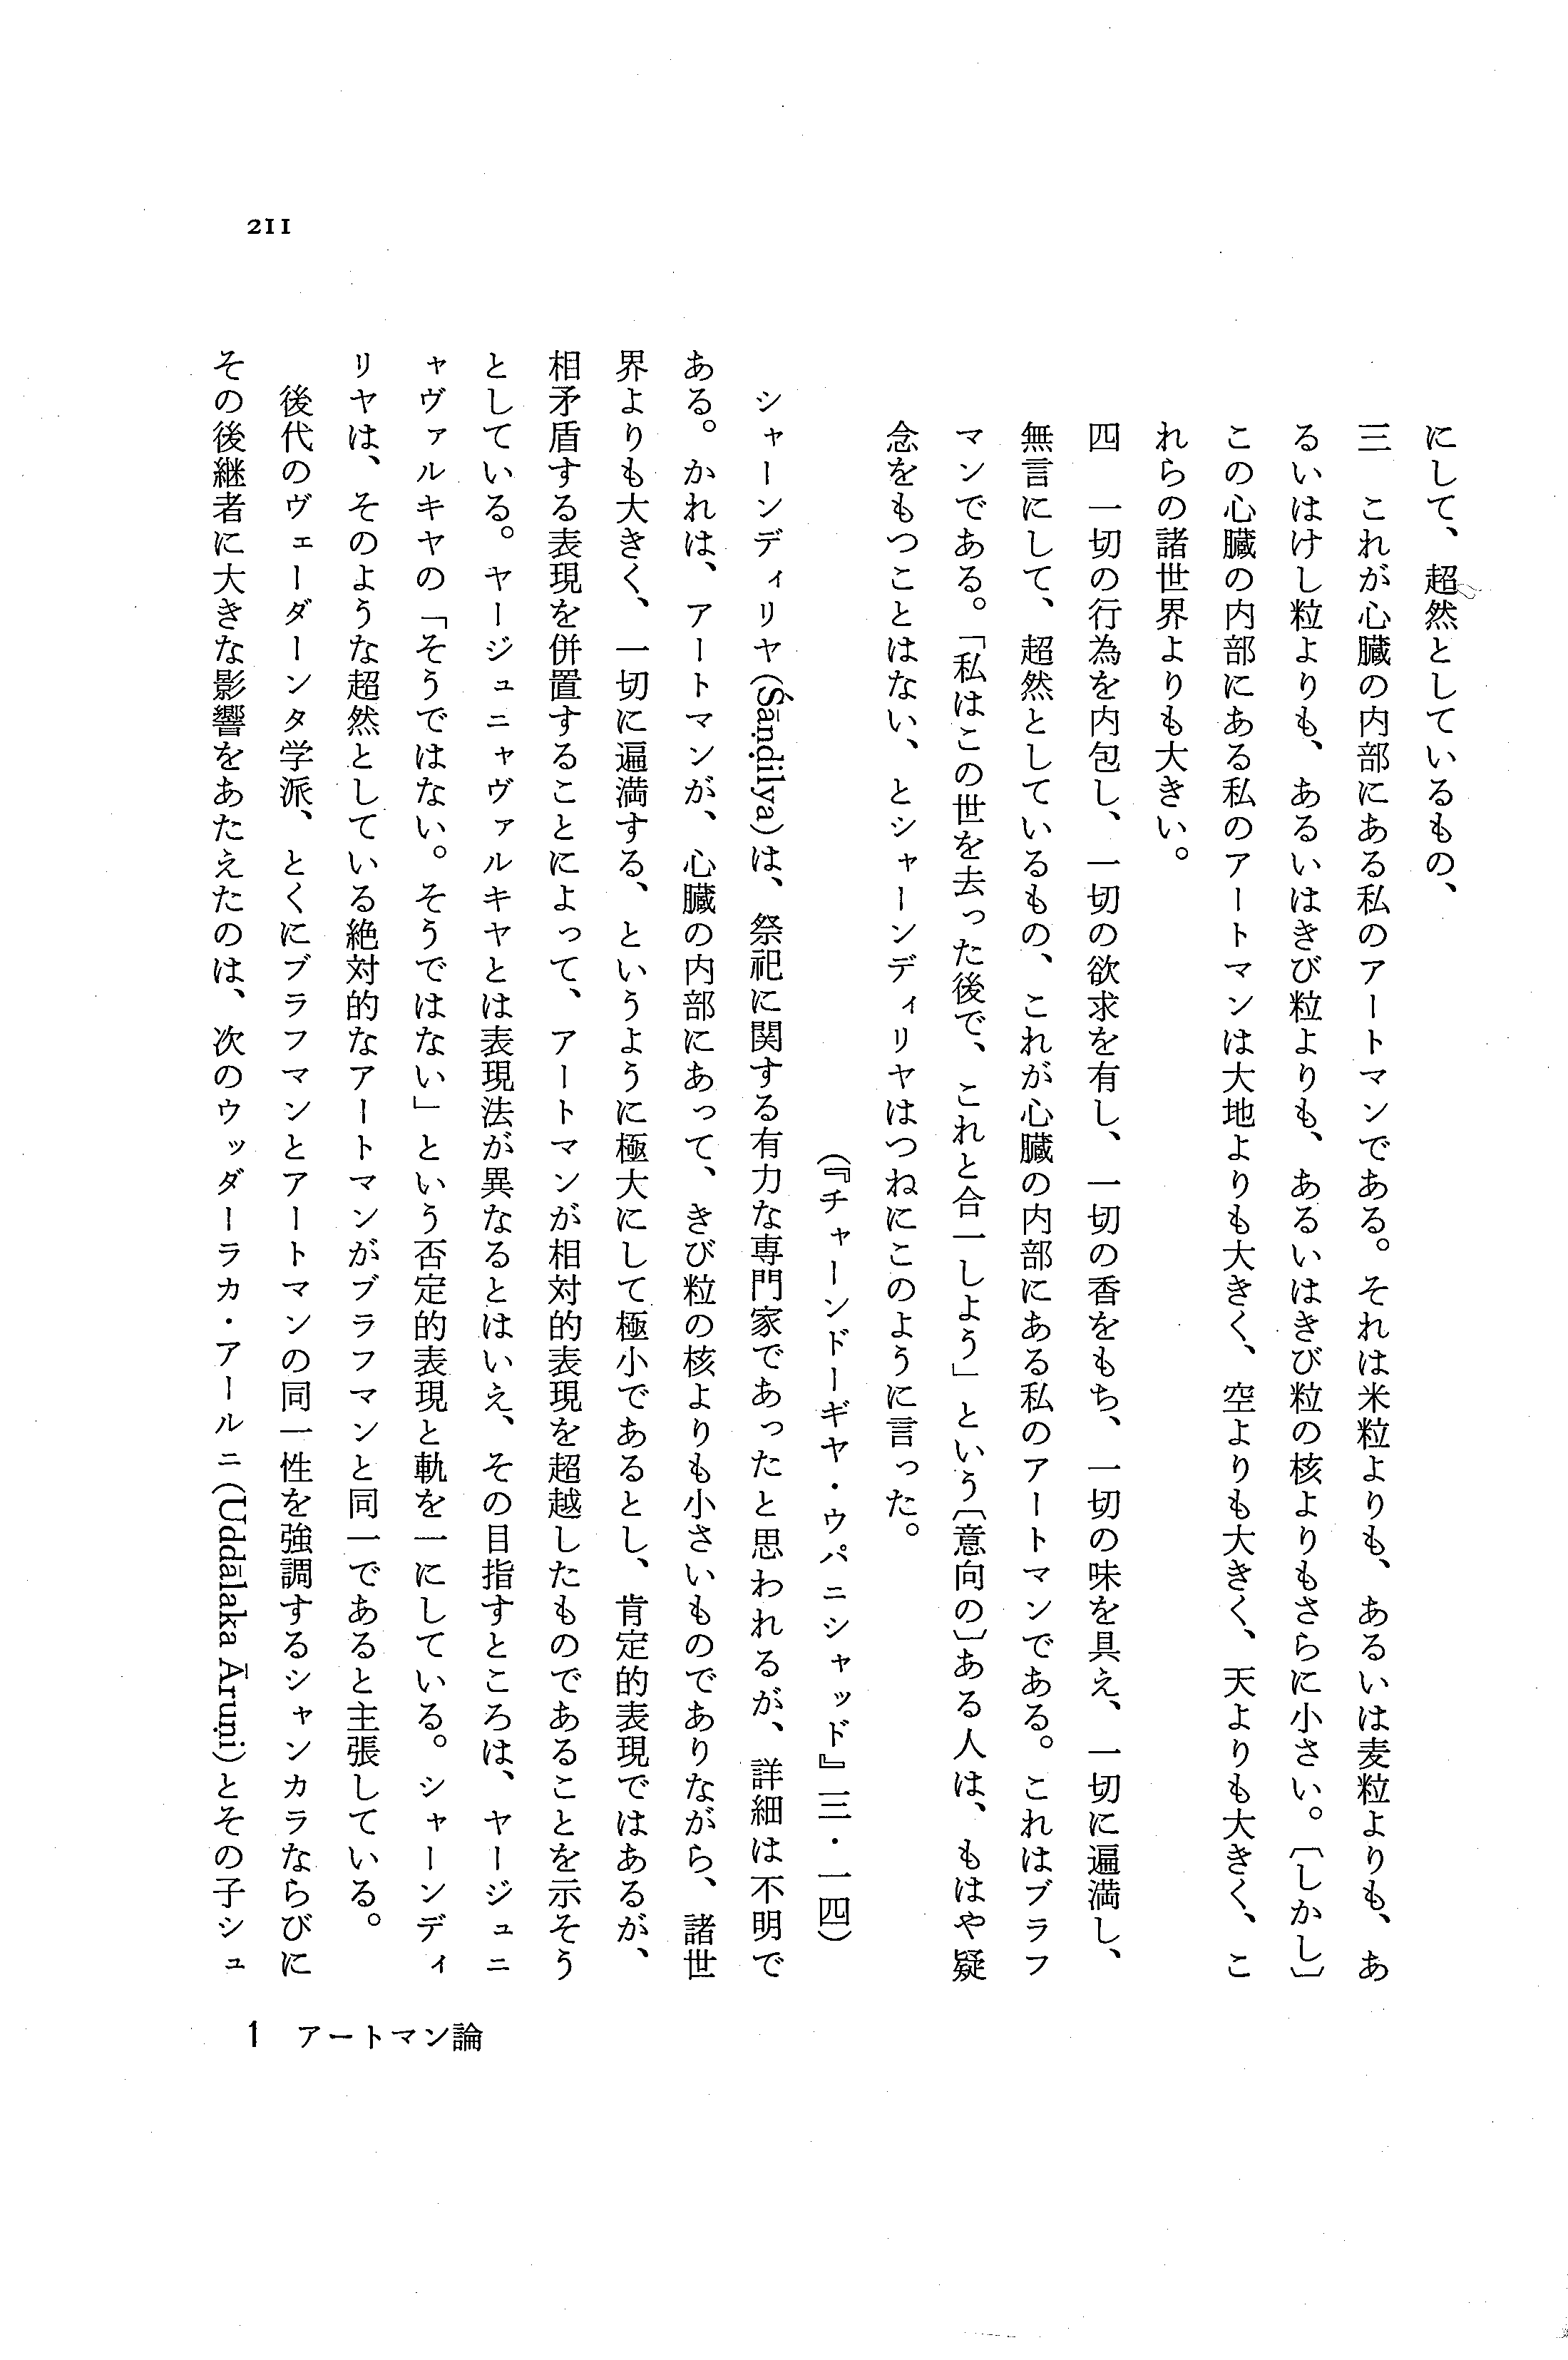 にして、超然としているもの、
三　これが心臓の内部にある私のアートマンである。それは米粒よりも、あるいは麦粒よりも、あ
るいはけし粒よりも、あるいはきび粒よりも、あるいはきび粒の核よりもさらに小さい。〔しかし〕
この心臓の内部にある私のアートマンは大地よりも大きく、空よりも大きく、天よりも大きく、こ
れらの諸世界よりも大きい。
四　一切の行為を内包し、一切の欲求を有し、一切の香をもち、一切の味を具え、一切に遍満し、
無言にして、超然としているもの、これが心臓の内部にある私のアートマンである。これはブラフ
マンである。「私はこの世を去った後で、これと合一しよう」という〔意向の〕ある人は、もはや疑
念をもつことはない、とシャーンディリヤはつねにこのように言った。
（『チャーンドーギヤ・ウパニシャッド』三・一四）
シャーンディリヤ(Śāṇḍilya)は、祭祀に関する有力な専門家であったと思われるが、詳細は不明で
ある。かれは、アートマンが、心臓の内部にあって、きび粒の核よりも小さいものでありながら、諸世
界よりも大きく、一切に遍満する、というように極大にして極小であるとし、肯定的表現ではあるが、
相矛盾する表現を併置することによって、アートマンが相対的表現を超越したものであることを示そう
としている。ヤージュニャヴァルキヤとは表現法が異なるとはいえ、その目指すところは、ヤージュニ
ャヴァルキヤの「そうではない。そうではない」という否定的表現と軌を一にしている。シャーンディ
リヤは、そのような超然としている絶対的なアートマンがブラフマンと同一であると主張している。
後代のヴェーダーンタ学派、とくにブラフマンとアートマンの同一性を強調するシャンカラならびに
その後継者に大きな影響をあたえたのは、次のウッダーラカ・アールニ(Uddālaka Āruṇi)とその子シュ
1　アートマン論
211